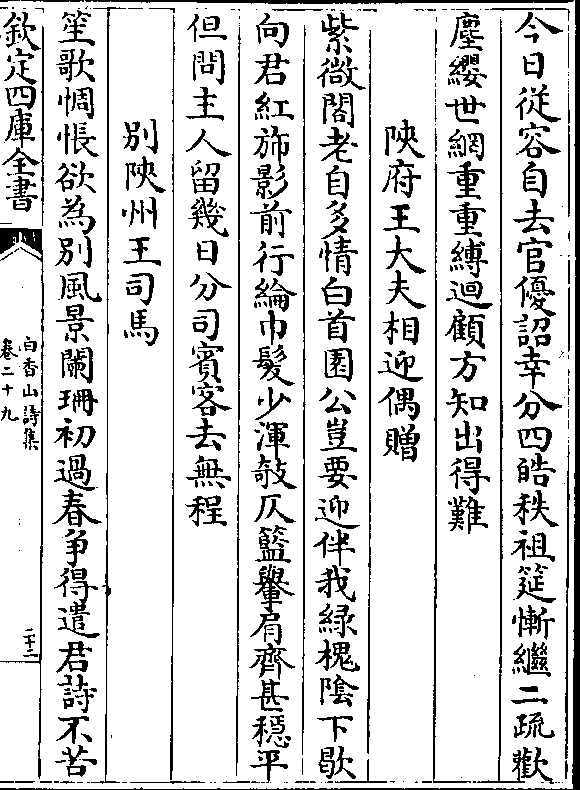 今日從容自去官優詔幸分四皓秩祖筵慚繼二疏歡
塵纓世網重重縛迴顧方知出得難
陜府王大夫相迎偶贈
紫微閣老自多情白首園公豈要迎伴我綠槐陰下歇
向君紅旆影前行綸巾髮少渾欹仄籃轝肩齊甚穩平
但問主人留幾日分司賓客去無程
別陜州王司馬
笙歌惆悵欲為別風景闌珊初過春爭得遣君詩不苦
欽定四庫全書
白香山詩集
卷二十九
二十二